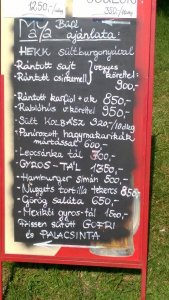 1250.-
550/-
Maya Büfé
ajánlata:
HEKK sültburgonyával
- Rántott sajt
- Rántott csirkemell
vegyes
körettel:
900.-
- Rántott karfiol
850,-
- Rablóhús
körettel
950,-
- Sült KOLBÁSZ 320/10dkg
- Panírozott hagymakarikák
mártással 600.-
- Lepcsánka tál 700,-
- GYROS-TÁL 1350,-
- Hamburger simán 500,-
- Nuggets tortilla tekercs 850,-
- Görög saláta 650,-
- Mexikói gyros-tál 1500,-
Frissen sütött GOFRI
és PALACSINTA